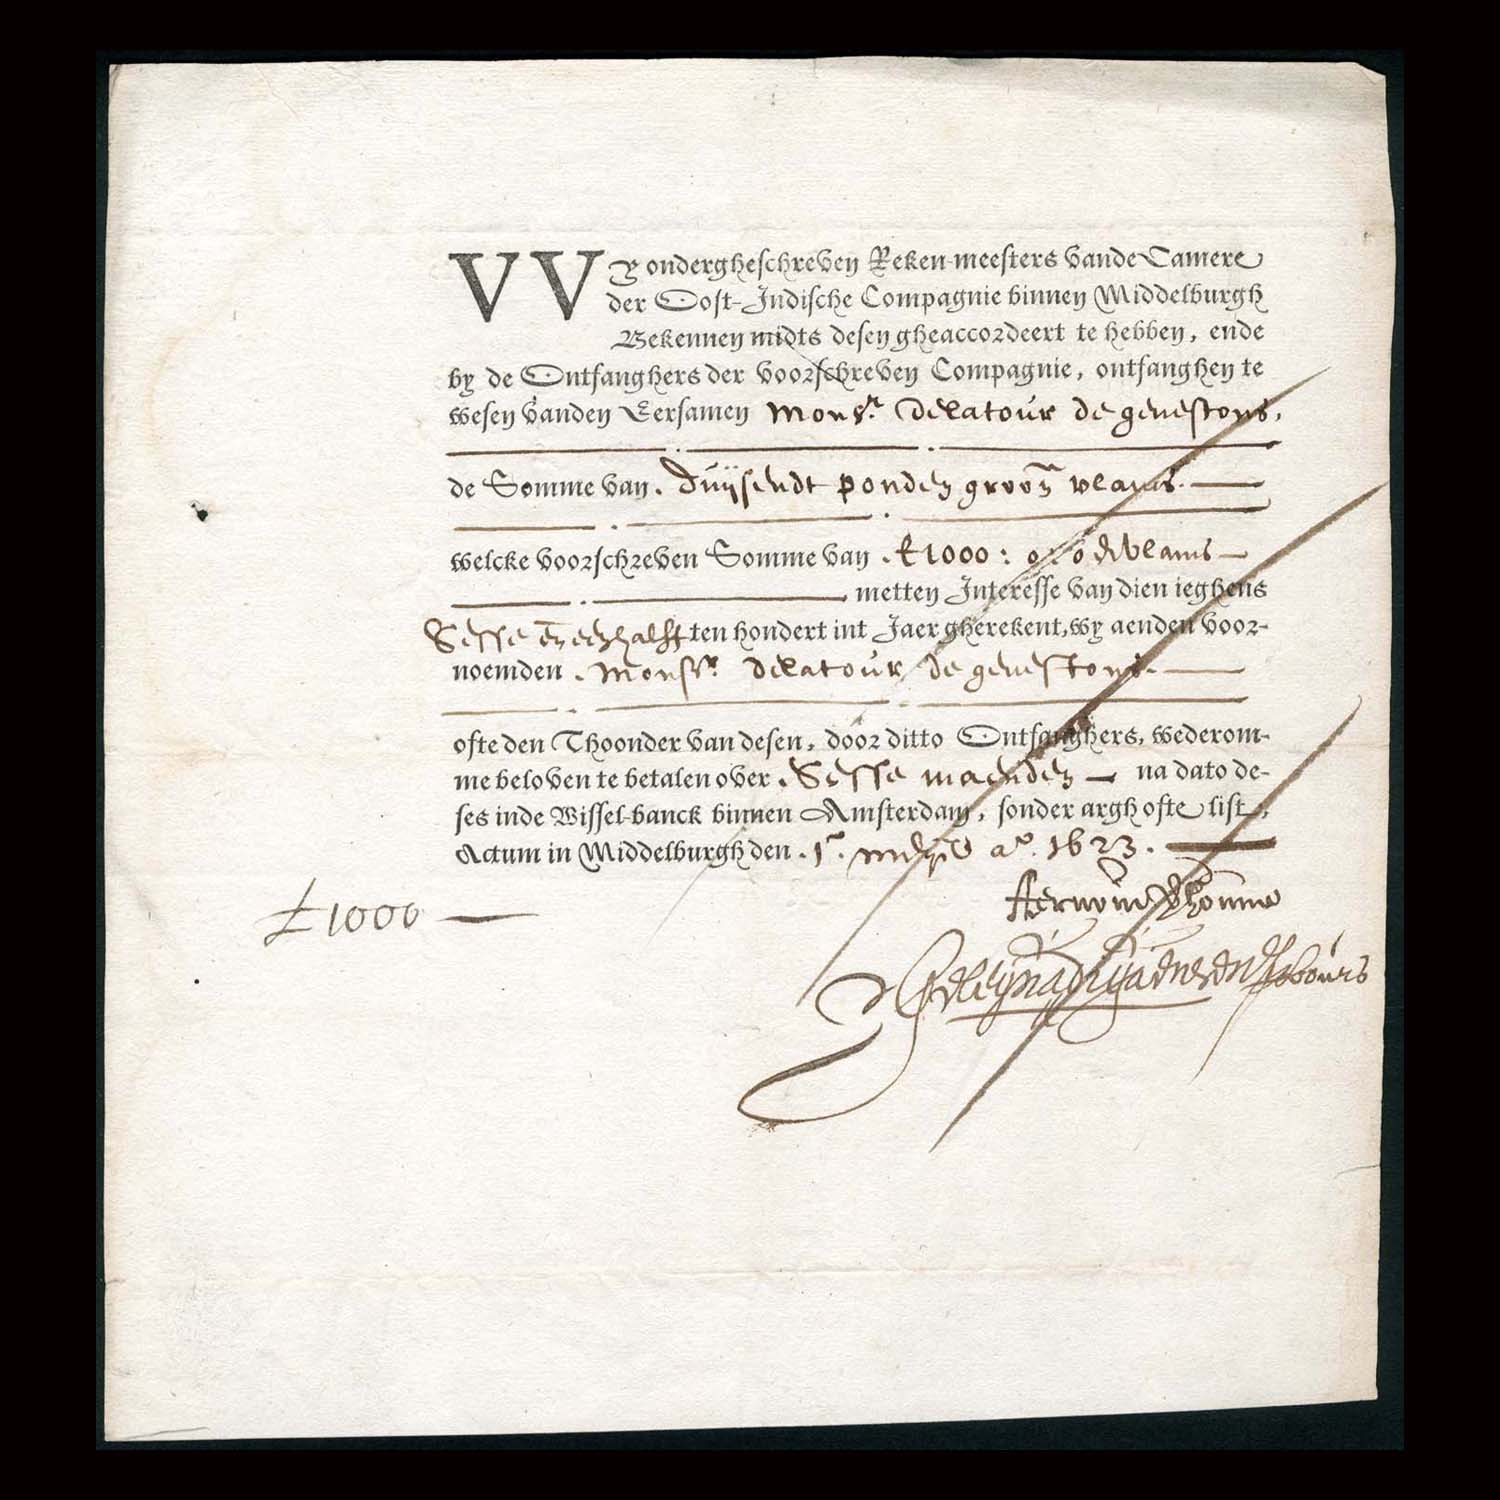 VVy ondergheschreven Reken-meesters vande Camere
der Oost-Indische Compagnie binnen Middelburgh
Bekennen midts desen gheaccordeert te hebben, ende
by de Ontfanghers der voorschreven Compagnie, ontfanghen te
wesen vanden Eersamen Monsr. Delatour de genestons,
de Somme van. duÿsendt ponden grooñ vlams.
welcke voorschreven Somme van .£1000: vlams
metten Interesse van dien ieghens
Sesse eñ een half ten hondert int Jaer gherekent, wy aenden voor-
noemden . Monsr. delatour de genestons.
ofte den Thoonder van desen, door ditto Ontfanghers, wederom-
me beloven te betalen over . Sesse maenden na dato de-
ses inde Wissel-banck binnen Amsterdam, sonder argh ofte list,
Actum in Middelburgh den . 1r. ao. 1623.
£1000